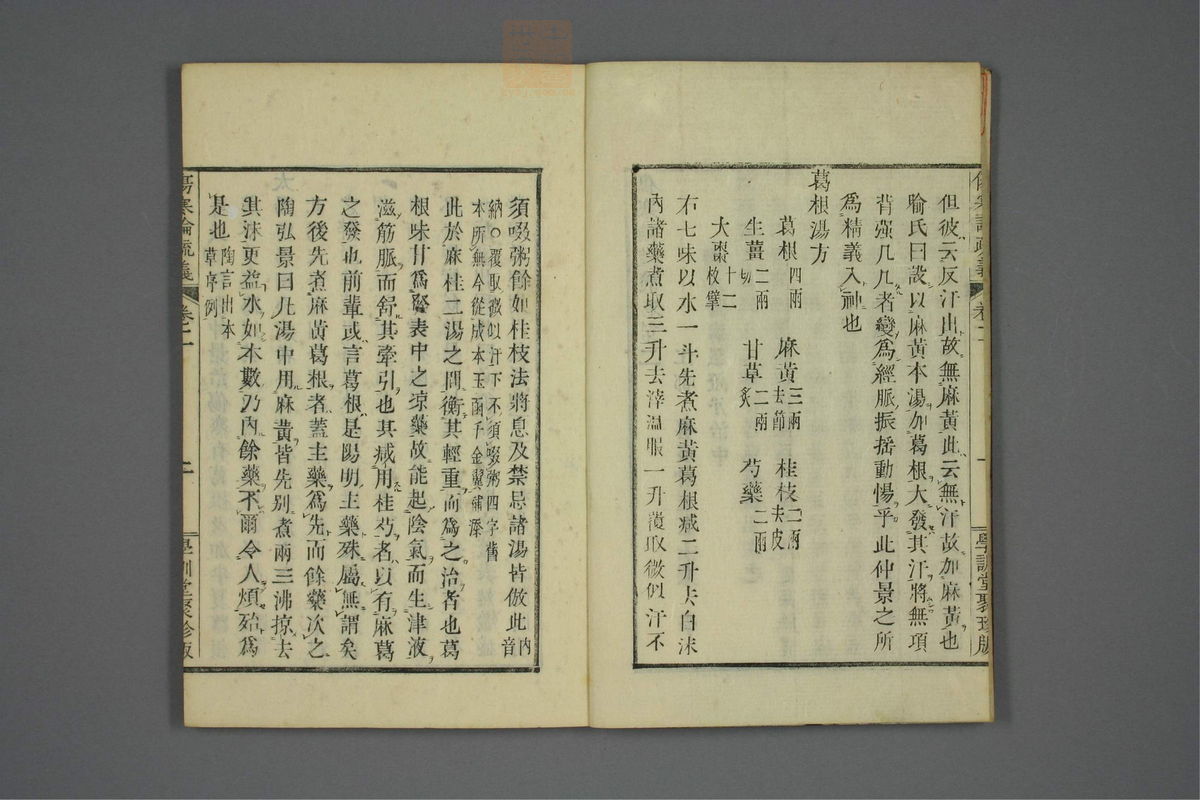 但彼云反汗出故無麻黃此云無汗故加麻黃也
喻氏曰設以麻黃本湯加葛根大發其汗將無項
背強几几者變為經脈振搖動惕乎此仲景之所
為精義入神也
葛根湯方
葛根四兩 麻黃三兩去節 桂枝二兩去皮
生薑二兩切 甘草二兩炙 芍藥二兩
大棗十二枚擘
右七味以水一斗先煮麻黃葛根減二升去白沫
內諸藥煮取三升去滓溫服一升覆取微似汗不
須啜粥餘如桂枝法將息及禁忌諸湯皆倣此內音
納○覆取微似汗下不須啜粥四字舊
本所無今從成本玉函千金翼補添
此於麻桂二湯之間衡其輕重而為之治者也葛
根味甘為發表中之涼藥故能起陰氣而生津液
滋筋脈而舒其牽引也其減用桂芍者以有麻葛
之發也前輩或言葛根是陽明主藥殊屬無謂矣
方後先煮麻黃葛根者蓋主藥為先而餘藥次之
陶弘景曰凡湯中用麻黃皆先別煮兩三沸掠去
其沫更益水如本數乃內餘藥不爾令人煩殆為
是也陶言出本草序例
傷寒論疏義 卷二 二 學訓堂聚珍版